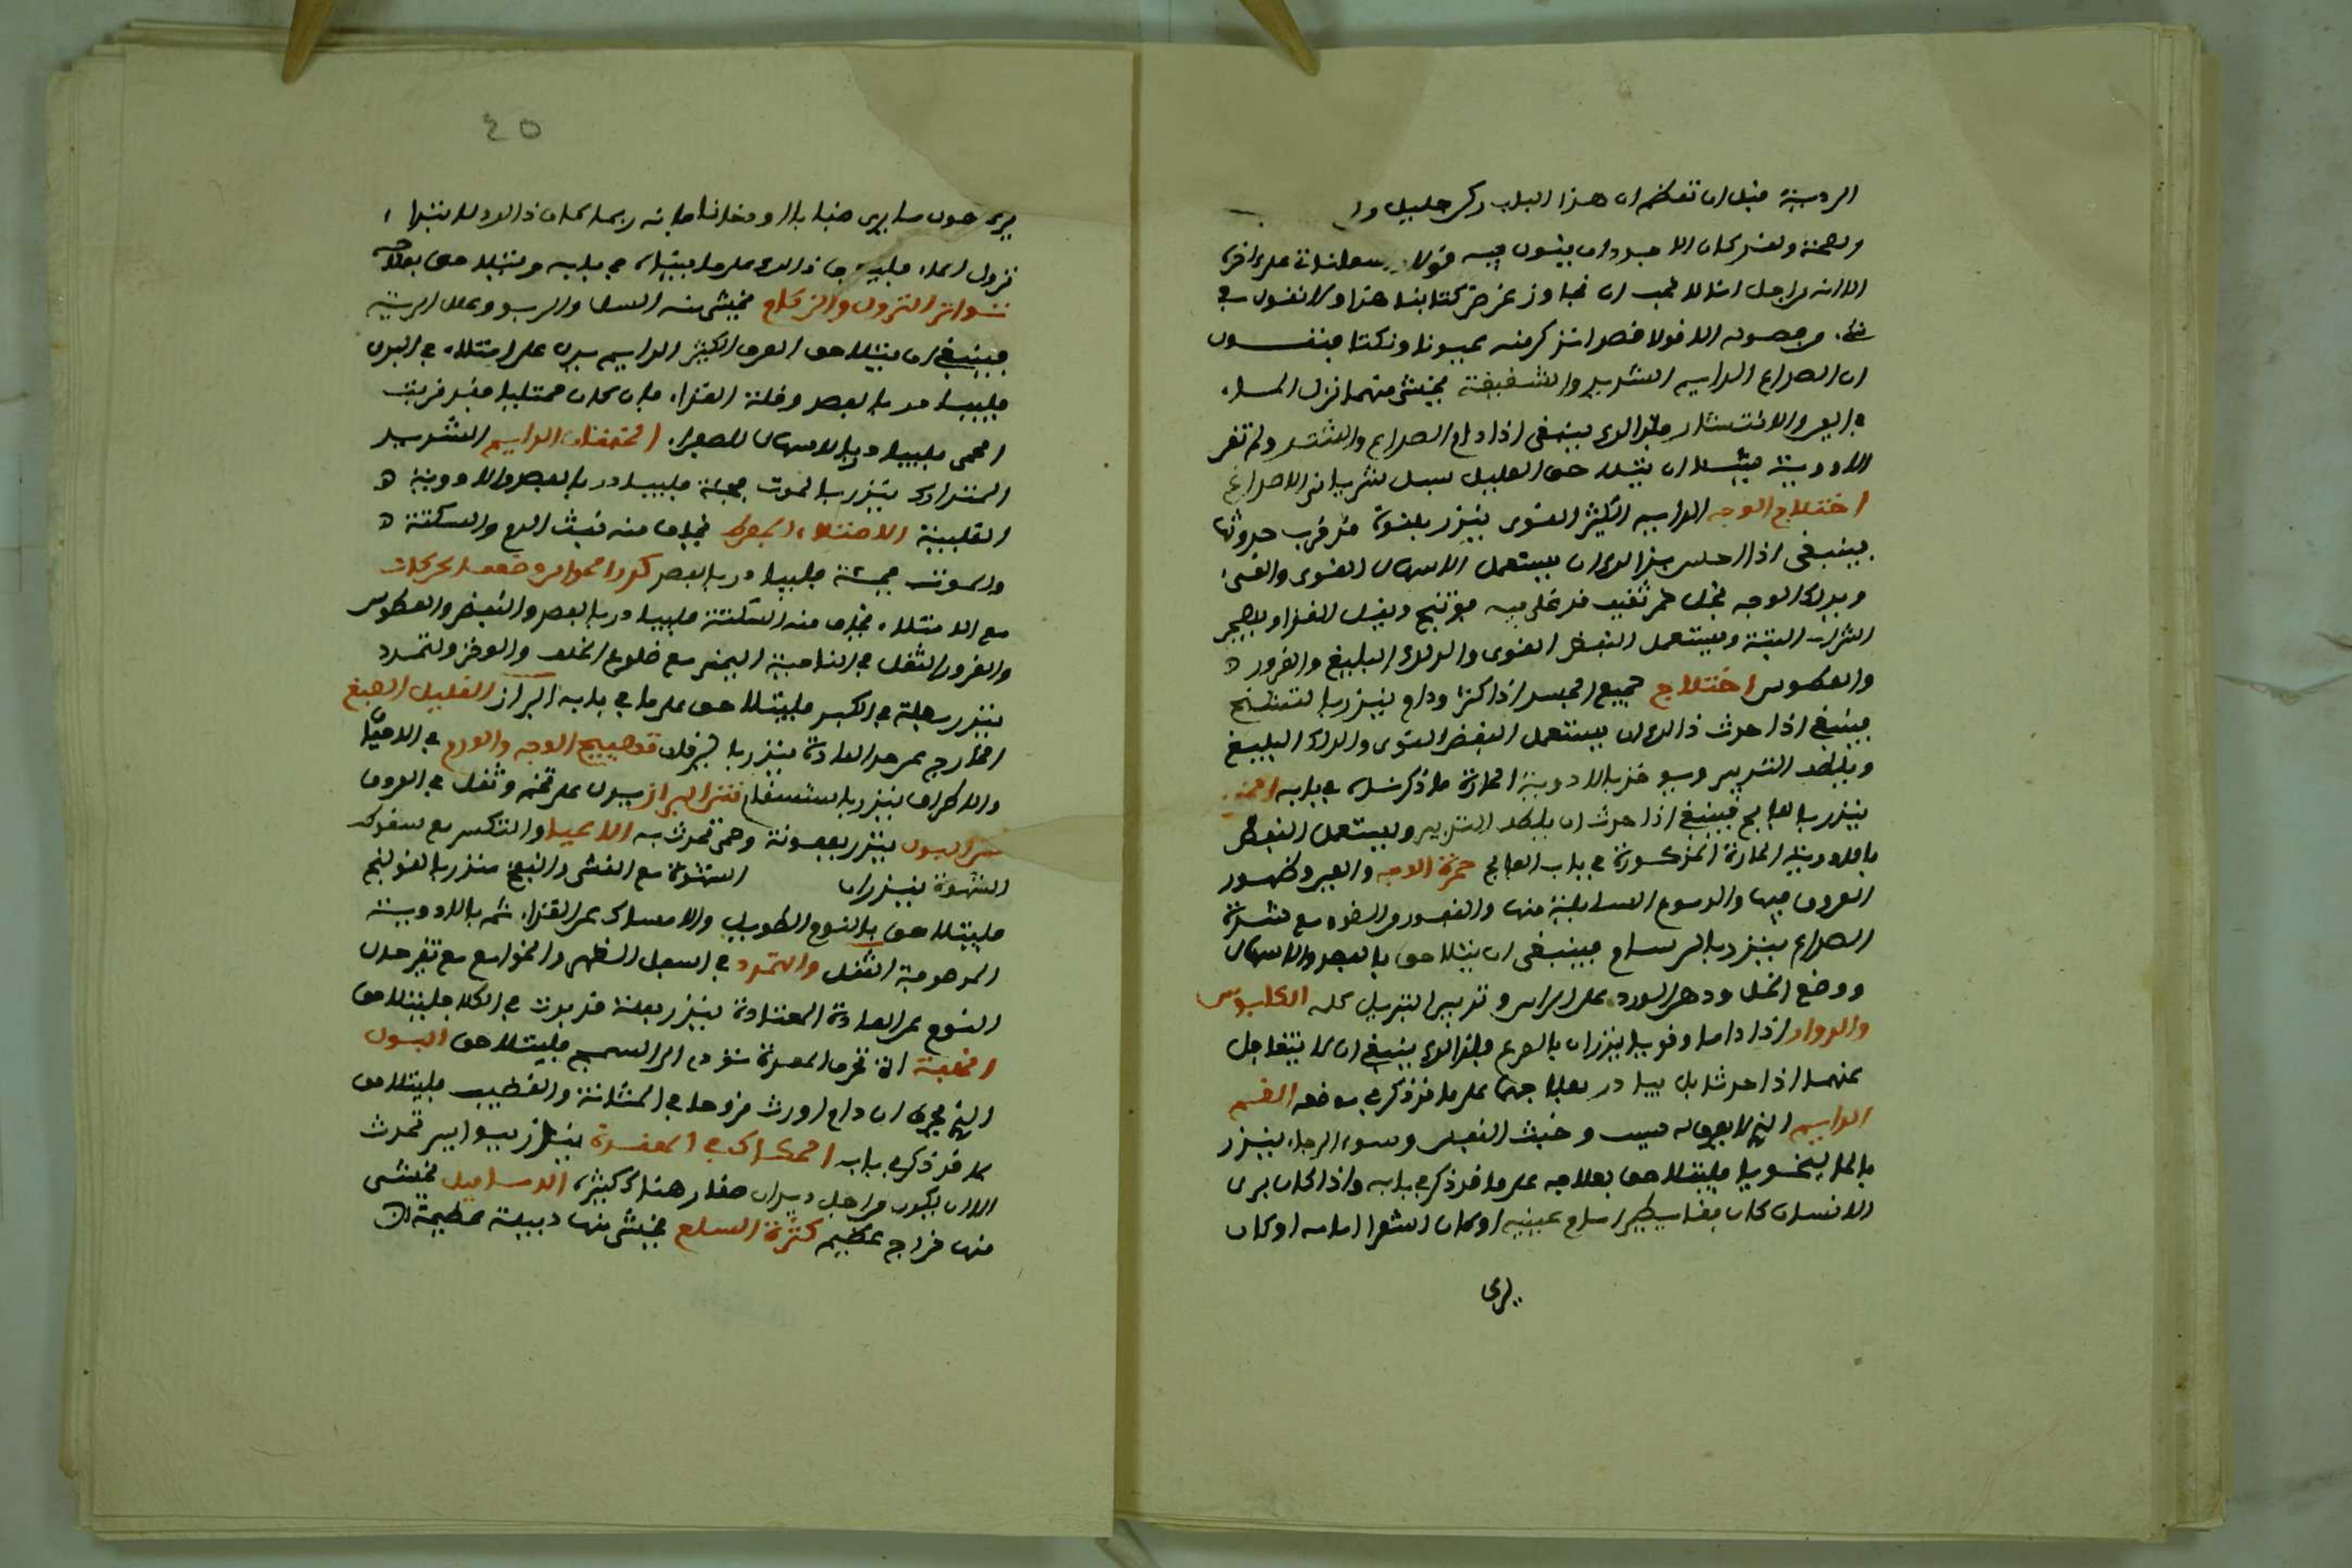 الردية قبل ان تعظم ان هذا الباب ركن جليل
وقد كان الاجود ان يكون فيه قولا
الا انه من اجل انا لا نحب ان نجاوز غرض كتابنا هذا ولا نقول في
من فصوله الا قولا قصدا نذكر منه عيونا ونكتا فنقول
ان الصداع الدايم الشديد والشقيقة يخشى منهما نزول الماء
في العين والانتشار فلذلك ينبغي اذا دام الصداع
الادوية
اختلاج الوجه الدايم الكثير القوي ينذر بلقوة قد قرب حدوثها
فينبغي اذا احس بذلك ان يستعمل الاسهال القوي
ويدلك الوجه بخل خمر ثقيف قد غلي فيه فوتنج ويقل الغذا ويهجر
الشراب البتة ويستعمل النفض القوي والدلك البليغ والغرور
والعطوس اختلاج جميع الجسد اذا كثر ودام ينذر بالتشنج
فينبغي اذا حدث ذلك ان يستعمل النفض القوي والدلك البليغ
ويلطف التدبير ويوخذ بالادوية الحارة ما ذكرناه في بابه الخدر
ينذر بالفالج فينبغي اذا حدث ان يلطف التدبير ويستعمل النفض
بالادوية الحارة المذكورة في باب الفالج حمرة الوجه والعين وظهور
العروق فيها والدموع السايلة منها والنفور من الضوء مع شدة
الصداع ينذر بالبرسام فينبغي ان يتلاحق بالفصد والاسهال
ووضع الخل ودهن الورد على الراس وتدبير التبريد كله الكابوس
والدوار اذا داما وقويا ينذران بالصرع فلذلك ينبغي ان لا يتغافل
عنهما اذا حدثا بل يبادر بعلاجهما على ما قد ذكر في موضعه الغم
الدايم الذي لا يعرف له سبب وخبث النفس وسوء الرجاء ينذر
بالماليخوليا فليتلاحق بعلاجه على ما قد ذكر في بابه واذا كان يرى
الانسان كان بقا يطير امام عينيه او كان الشعر امامه او كان
يرى
٤٥
يرى حول ما يرى ضبابا او دخانا فانه ربما كان ذلك لابتداء
نزول الماء فليبحث في ذلك على ما بيناه في بابه ويتلاحق بعلاجه
تواتر النزول والزكام يخشى منه السل والربو وعلل الرية
فينبغي ان يتلاحق العرق الكثير الدايم يدل على امتلاء في البدن
فليبادر بالفصد وقلة الغذاء فان كان ممتليا فقد قربت
الحمى فليبادر بالاسهال للصفراء الخفقان الدايم الشديد
المتدارك ينذر بالموت فجئة فليبادر بالفصد والادوية
القلبية الامتلاء المفرط يخاف منه نفث الدم والسكتة
والموت فجئة فليبادر بالفصد كدر الحواس وضعف الحركات
مع الامتلاء يخاف منه السكتة فليبادر بالفصد والنفض والعطوس
والغرور الثقل في الناحية اليمنى مع ضلوع الخلف والوخز والتمدد
ينذر بعلة في الكبد فليتلاحق على ما في بابه البراز القليل الصبغ
الخارج عن حد العادة ينذر باليرقان تهييج الوجه والورم في الاماق
والاطراف ينذر باستسقاء نتن البراز يدل على تخم وثقل في العروق
نتن البول ينذر بعفونة وحمى تحدث به الاعياء والتكسر مع سقوط
الشهوة ينذران الشهوة مع الغثى والنفخ ينذر بالقولنج
فليتلاحق بالنوم الطويل والامساك عن الغذاء ثم بالادوية
الموصوفة الثقل والتمدد في اسفل الظهر والخواصر مع تغير حال
البول عن العادة المعتادة ينذر بعلة قد بدت في الكلا فليتلاحق
الخلفة التي تحرق المعدة تؤدي الى السحج فليتلاحق البول
الذي يحرق ان دام اورث قروحا في المثانة والقضيب فليتلاحق
كما قد ذكر في بابه الحكاك في المقعدة ينذر ببواسير تحدث
الا ان يكون من اجل ديدان صغار هناك كثيرة الدماميل يخشى
منها خراج عظيم كثرة السلع يخشى منها دبيلة عظيمة